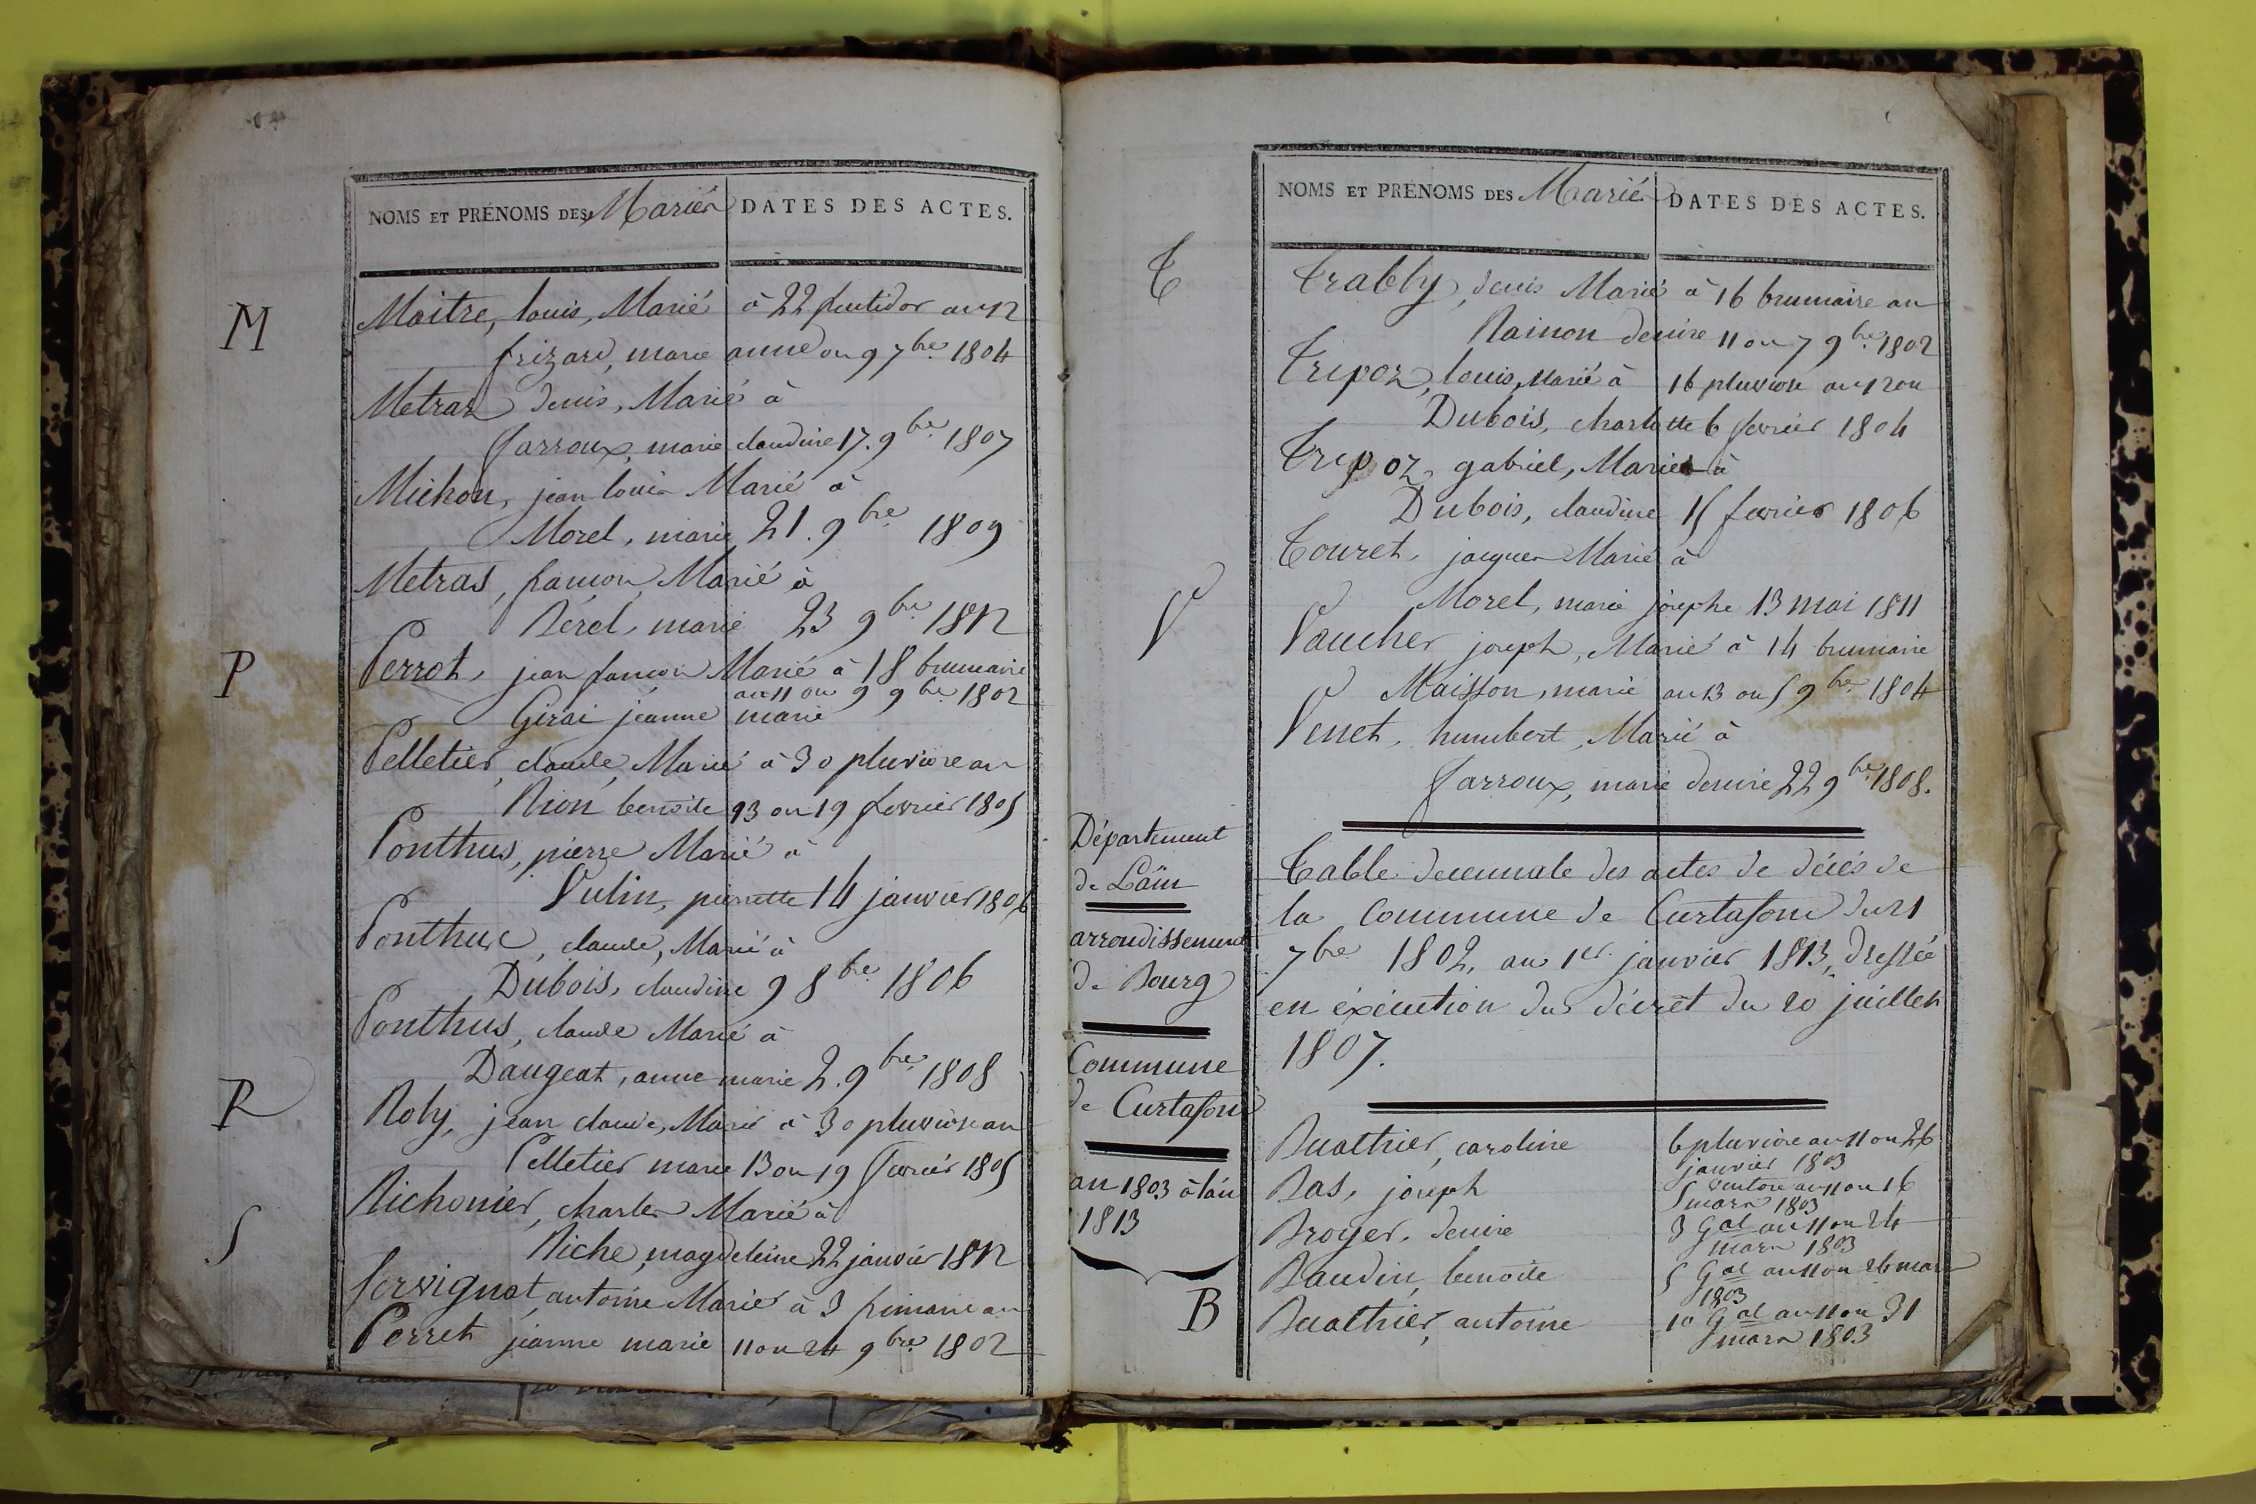 NOMS ET PRÉNOMS DES Mariés
DATES DES ACTES.
M
Maitre, louis, Marié à 22 fructidor an 12
frizard, marie anne ou 9 7bre 1804
Metraz denis, Marié à
Jarroux, marie claudine 17. 9bre 1807
Michon, jean louis Marié à
Morel, marie 21. 9bre 1809
Metras, françois, Marié à
Bérel, marie 23 9bre 1812
P
Perrot, jean françois Marié à 18 brumaire
an 11 ou 9 9bre 1802
Girai jeanne marie
Pelletier, claude, Marié à 30 pluviose an
Rion benoite 13 ou 19 fevrier 1805
Ponthus, pierre Marié à
Vulin, pierrette 14 janvier 1806
Ponthus, claude, Marié à
Dubois, claudine 9 8bre 1806
Ponthus, claude Marié à
Daugeat, anne marie 2. 9bre 1808
R
Roby, jean claude, Marié à 30 pluviose an
Pelletier marie 13 ou 19 fevrier 1805
Richonier, charles Marié à
Riche, magdeleine 22 janvier 1812
S
Servignat, antoine Marié à 3 frimaire an
Perret jeanne marie 11 ou 24 9bre 1802
NOMS ET PRÉNOMS DES Mariés
DATES DES ACTES.
T
Trably, denis Marié à 16 brumaire an
Rainon denise 11 ou 7 9bre 1802
Tripoz, louis, Marié à 16 pluviose an 12 ou
Dubois, charlotte 6 fevrier 1804
Tripoz, gabriel, Marié à
Dubois, claudine 15 fevrier 1806
Touret, jacques Marié à
Morel, marie josephe 13 mai 1811
V
Vaucher joseph, Marié à 14 brumaire
Maisson, marie an 13 ou 5 9bre 1804
Venet, humbert, Marié à
Jarroux, marie denise 22 9bre 1808.
Département
de Laïn
arrondissement
de Bourg
Commune
de Curtafond
an 1803 à l'an
1813
Table decennale des actes de décés de
la Commune de Curtafond du 21
7bre 1802, au 1er janvier 1813, dressée
en éxécution du décret du 20 juillet
1807.
B
Buathier, caroline 6 pluviose an 11 ou 26
janvier 1803
Bas, joseph ventose an 11 ou 16
mars 1803
Broyer, denise 3 Gal an 11 ou 24
mars 1803
Baudin, benoite 5 Gal an 11 ou 26 mars
1803
Buathier, antoine 10 Gal an 11 ou 31
mars 1803